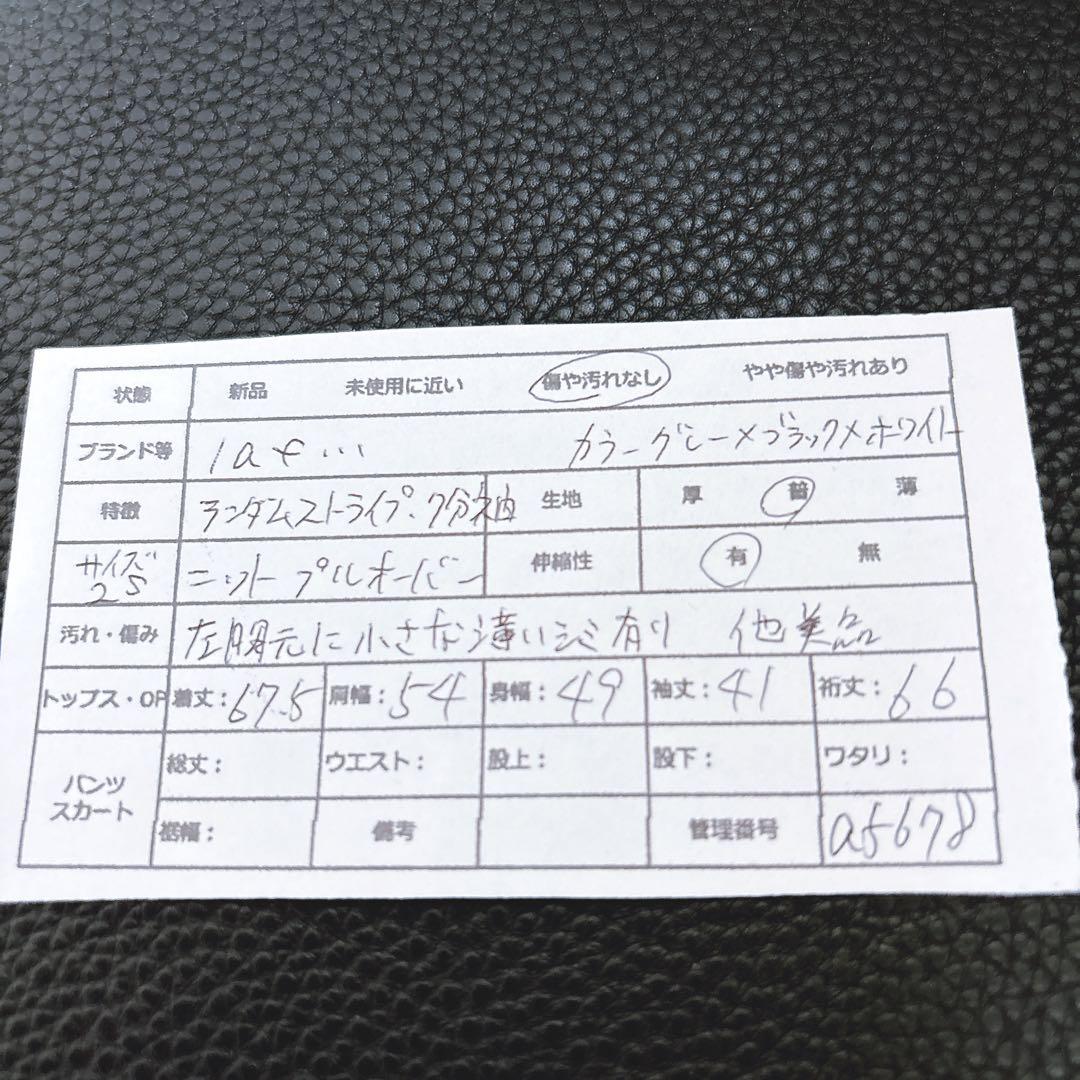 状態 新品 未使用に近い 傷や汚れなし やや傷や汚れあり
ブランド等 1a+... カラーグレー×ブラック×ホワイト
特徴 ランダムストライプ、7分袖 生地 厚 普 薄
サイズ25 ニットプルオーバー 伸縮性 有 無
汚れ・傷み 左胸元に小さな薄いシミ有り 他美品
トップス・OP 着丈:67.5 肩幅:54 身幅:49 袖丈:41 裄丈:66
パンツ スカート 総丈: ウエスト: 股上: 股下: ワタリ:
裾幅: 備考 管理番号 a5678